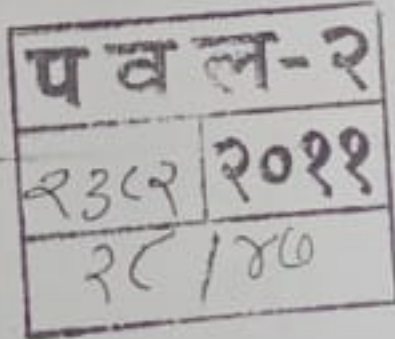 प व ल-२
२३८२ २०११
२८/४७